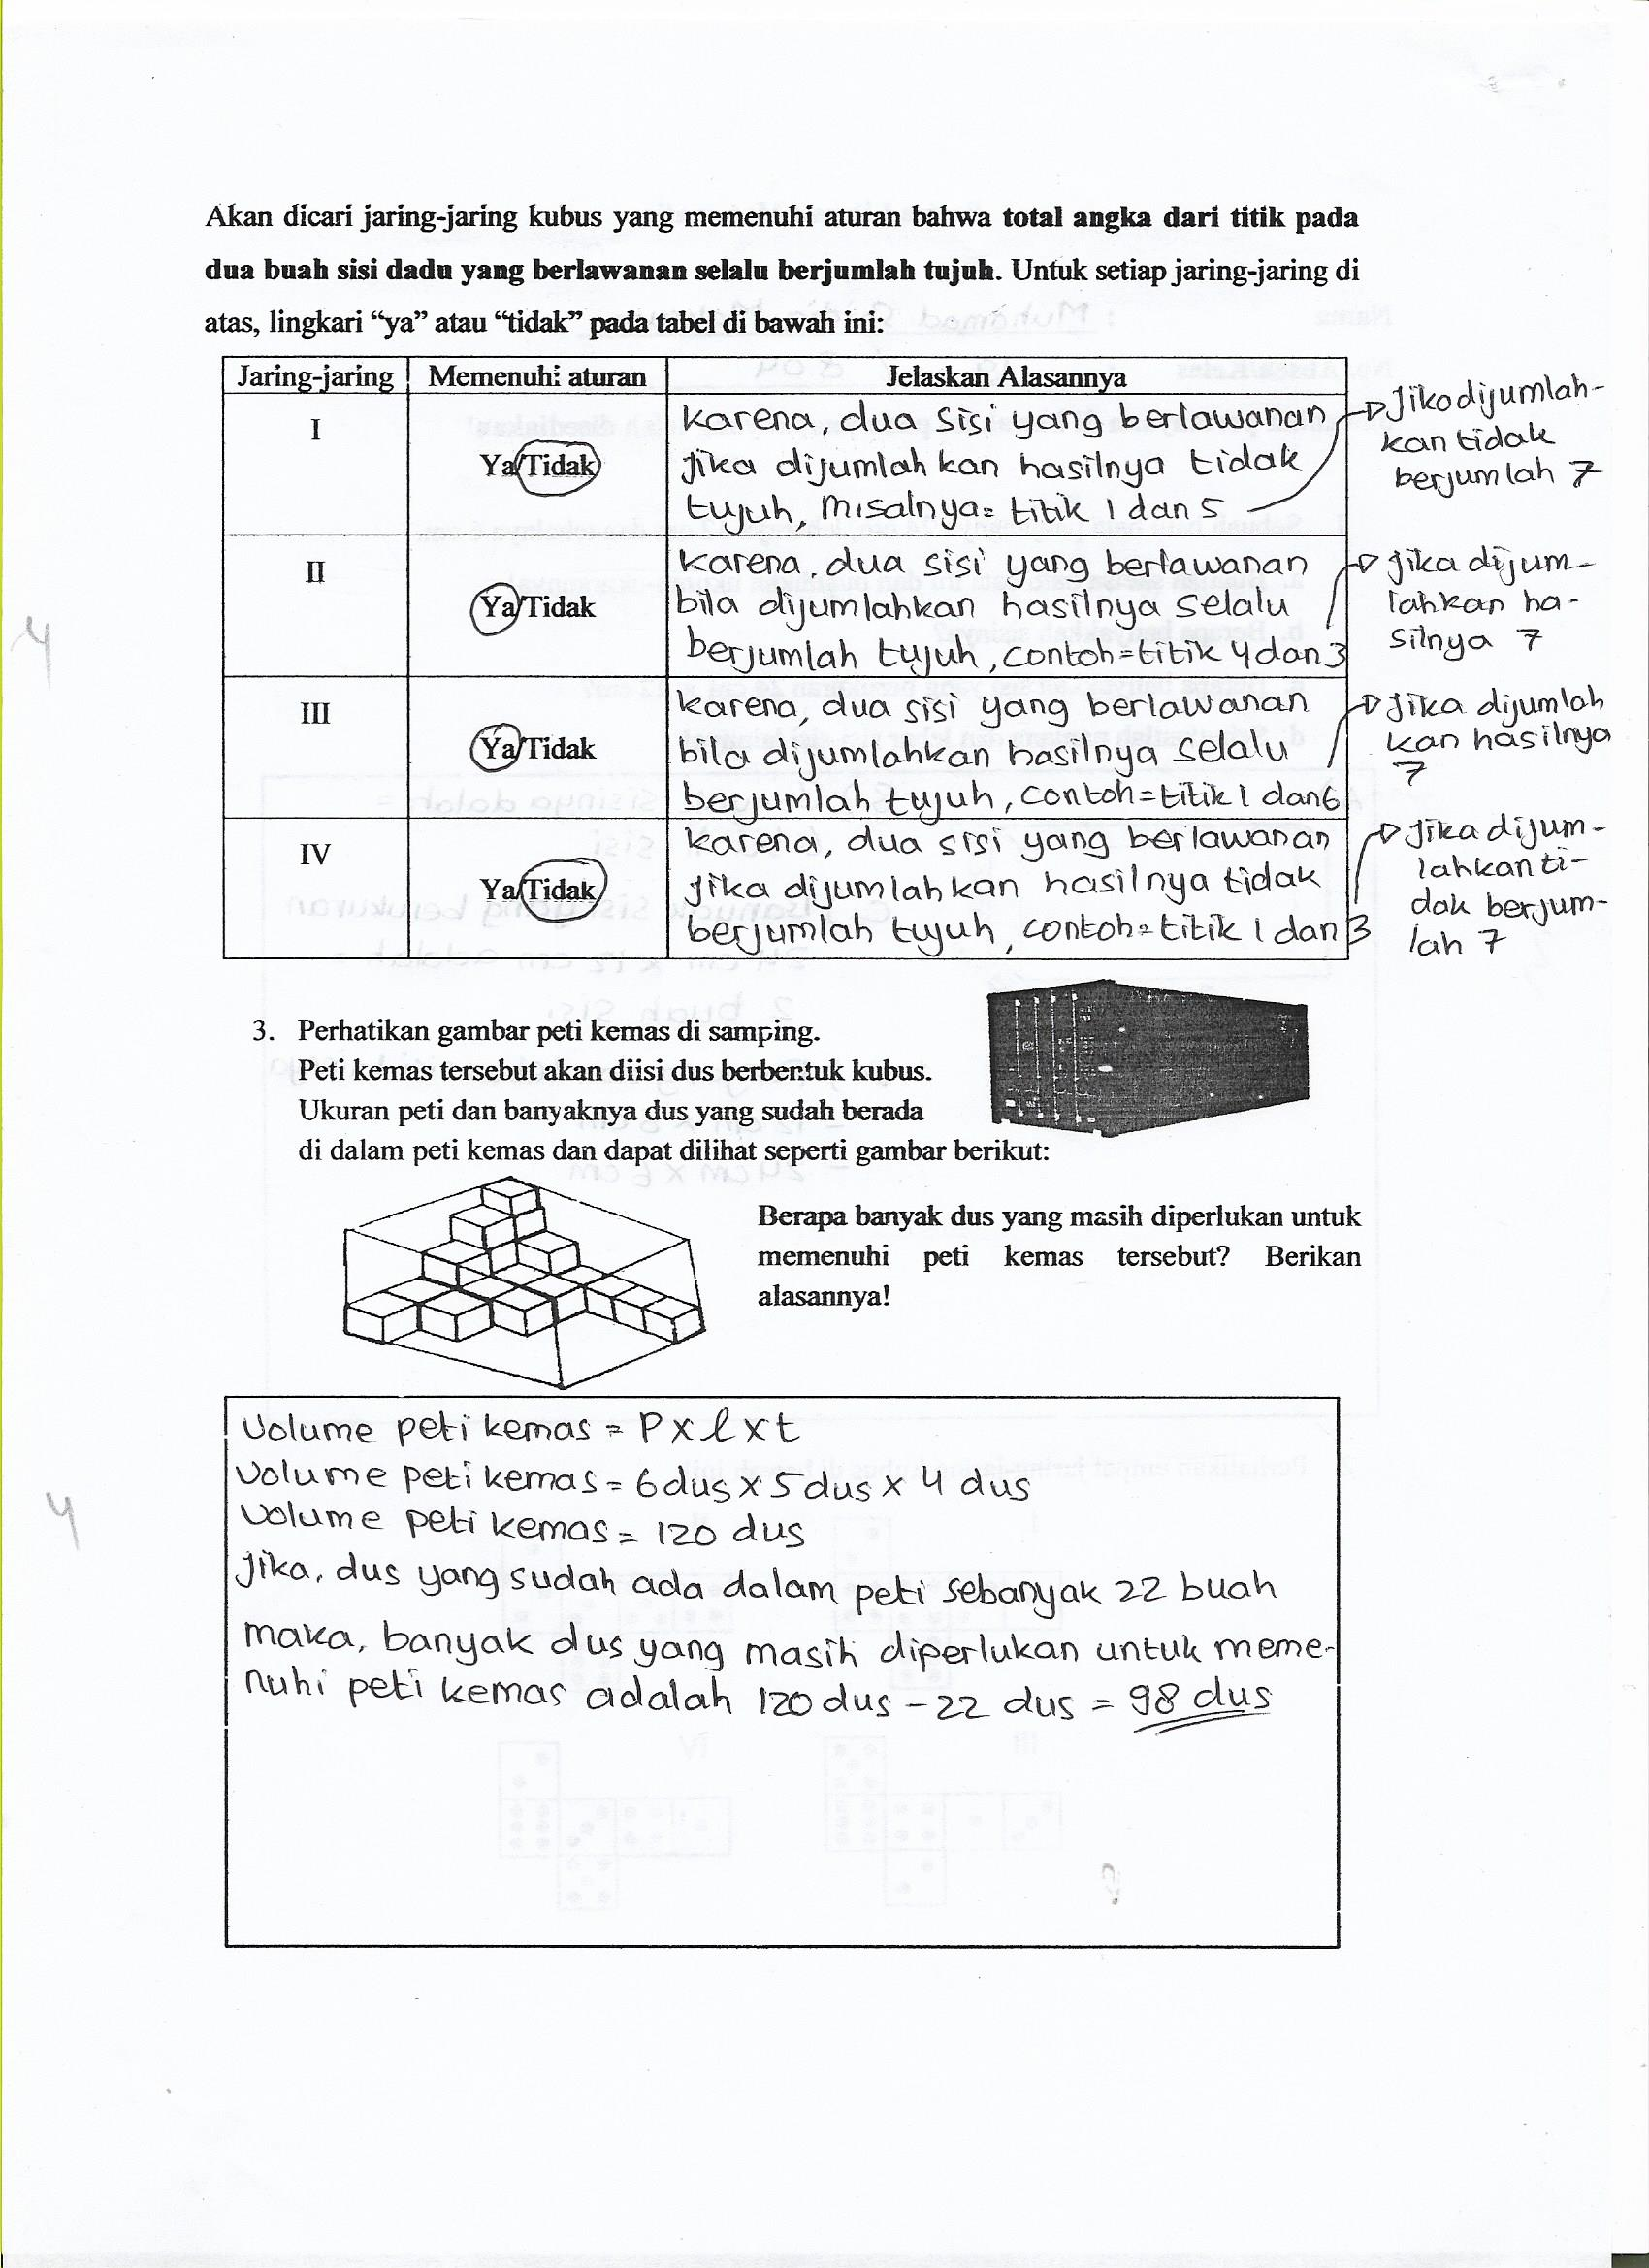 Akan dicari jaring-jaring kubus yang memenuhi aturan bahwa total angka dari titik pada
dua buah sisi dadu yang berlawanan selalu berjumlah tujuh. Untuk setiap jaring-jaring di
atas, lingkari “ya” atau “tidak” pada tabel di bawah ini:
Jaring-jaring Memenuhi aturan Jelaskan Alasannya
I
Ya/Tidak
karena, dua sisi yang berlawanan
jika dijumlah kan hasilnya tidak
tujuh, misalnya= titik 1 dan 5
Jika dijumlah-
kan tidak
berjumlah 7
II
Ya/Tidak
karena, dua sisi yang berlawanan
bila dijumlahkan hasilnya selalu
berjumlah tujuh, contoh=titik 4 dan 3
jika dijum-
lahkan ha-
silnya 7
4
III
Ya/Tidak
karena, dua sisi yang berlawanan
bila dijumlahkan hasilnya selalu
berjumlah tujuh, contoh=titik 1 dan 6
Jika dijumlah
kan hasilnya
7
IV
Ya/Tidak
karena, dua sisi yang berlawanan
jika dijumlah kan hasilnya tidak
berjumlah tujuh, contoh=titik 1 dan 3
Jika dijum-
lahkan ti-
dak berjum-
lah 7
3. Perhatikan gambar peti kemas di samping.
Peti kemas tersebut akan diisi dus berbentuk kubus.
Ukuran peti dan banyaknya dus yang sudah berada
di dalam peti kemas dan dapat dilihat seperti gambar berikut:
Berapa banyak dus yang masih diperlukan untuk
memenuhi peti kemas tersebut? Berikan
alasannya!
Volume peti kemas = P x l x t
Volume peti kemas = 6 dus x 5 dus x 4 dus
Volume peti kemas = 120 dus
4
Jika, dus yang sudah ada dalam peti sebanyak 22 buah
maka, banyak dus yang masih diperlukan untuk meme-
nuhi peti kemas adalah 120 dus - 22 dus = 98 dus